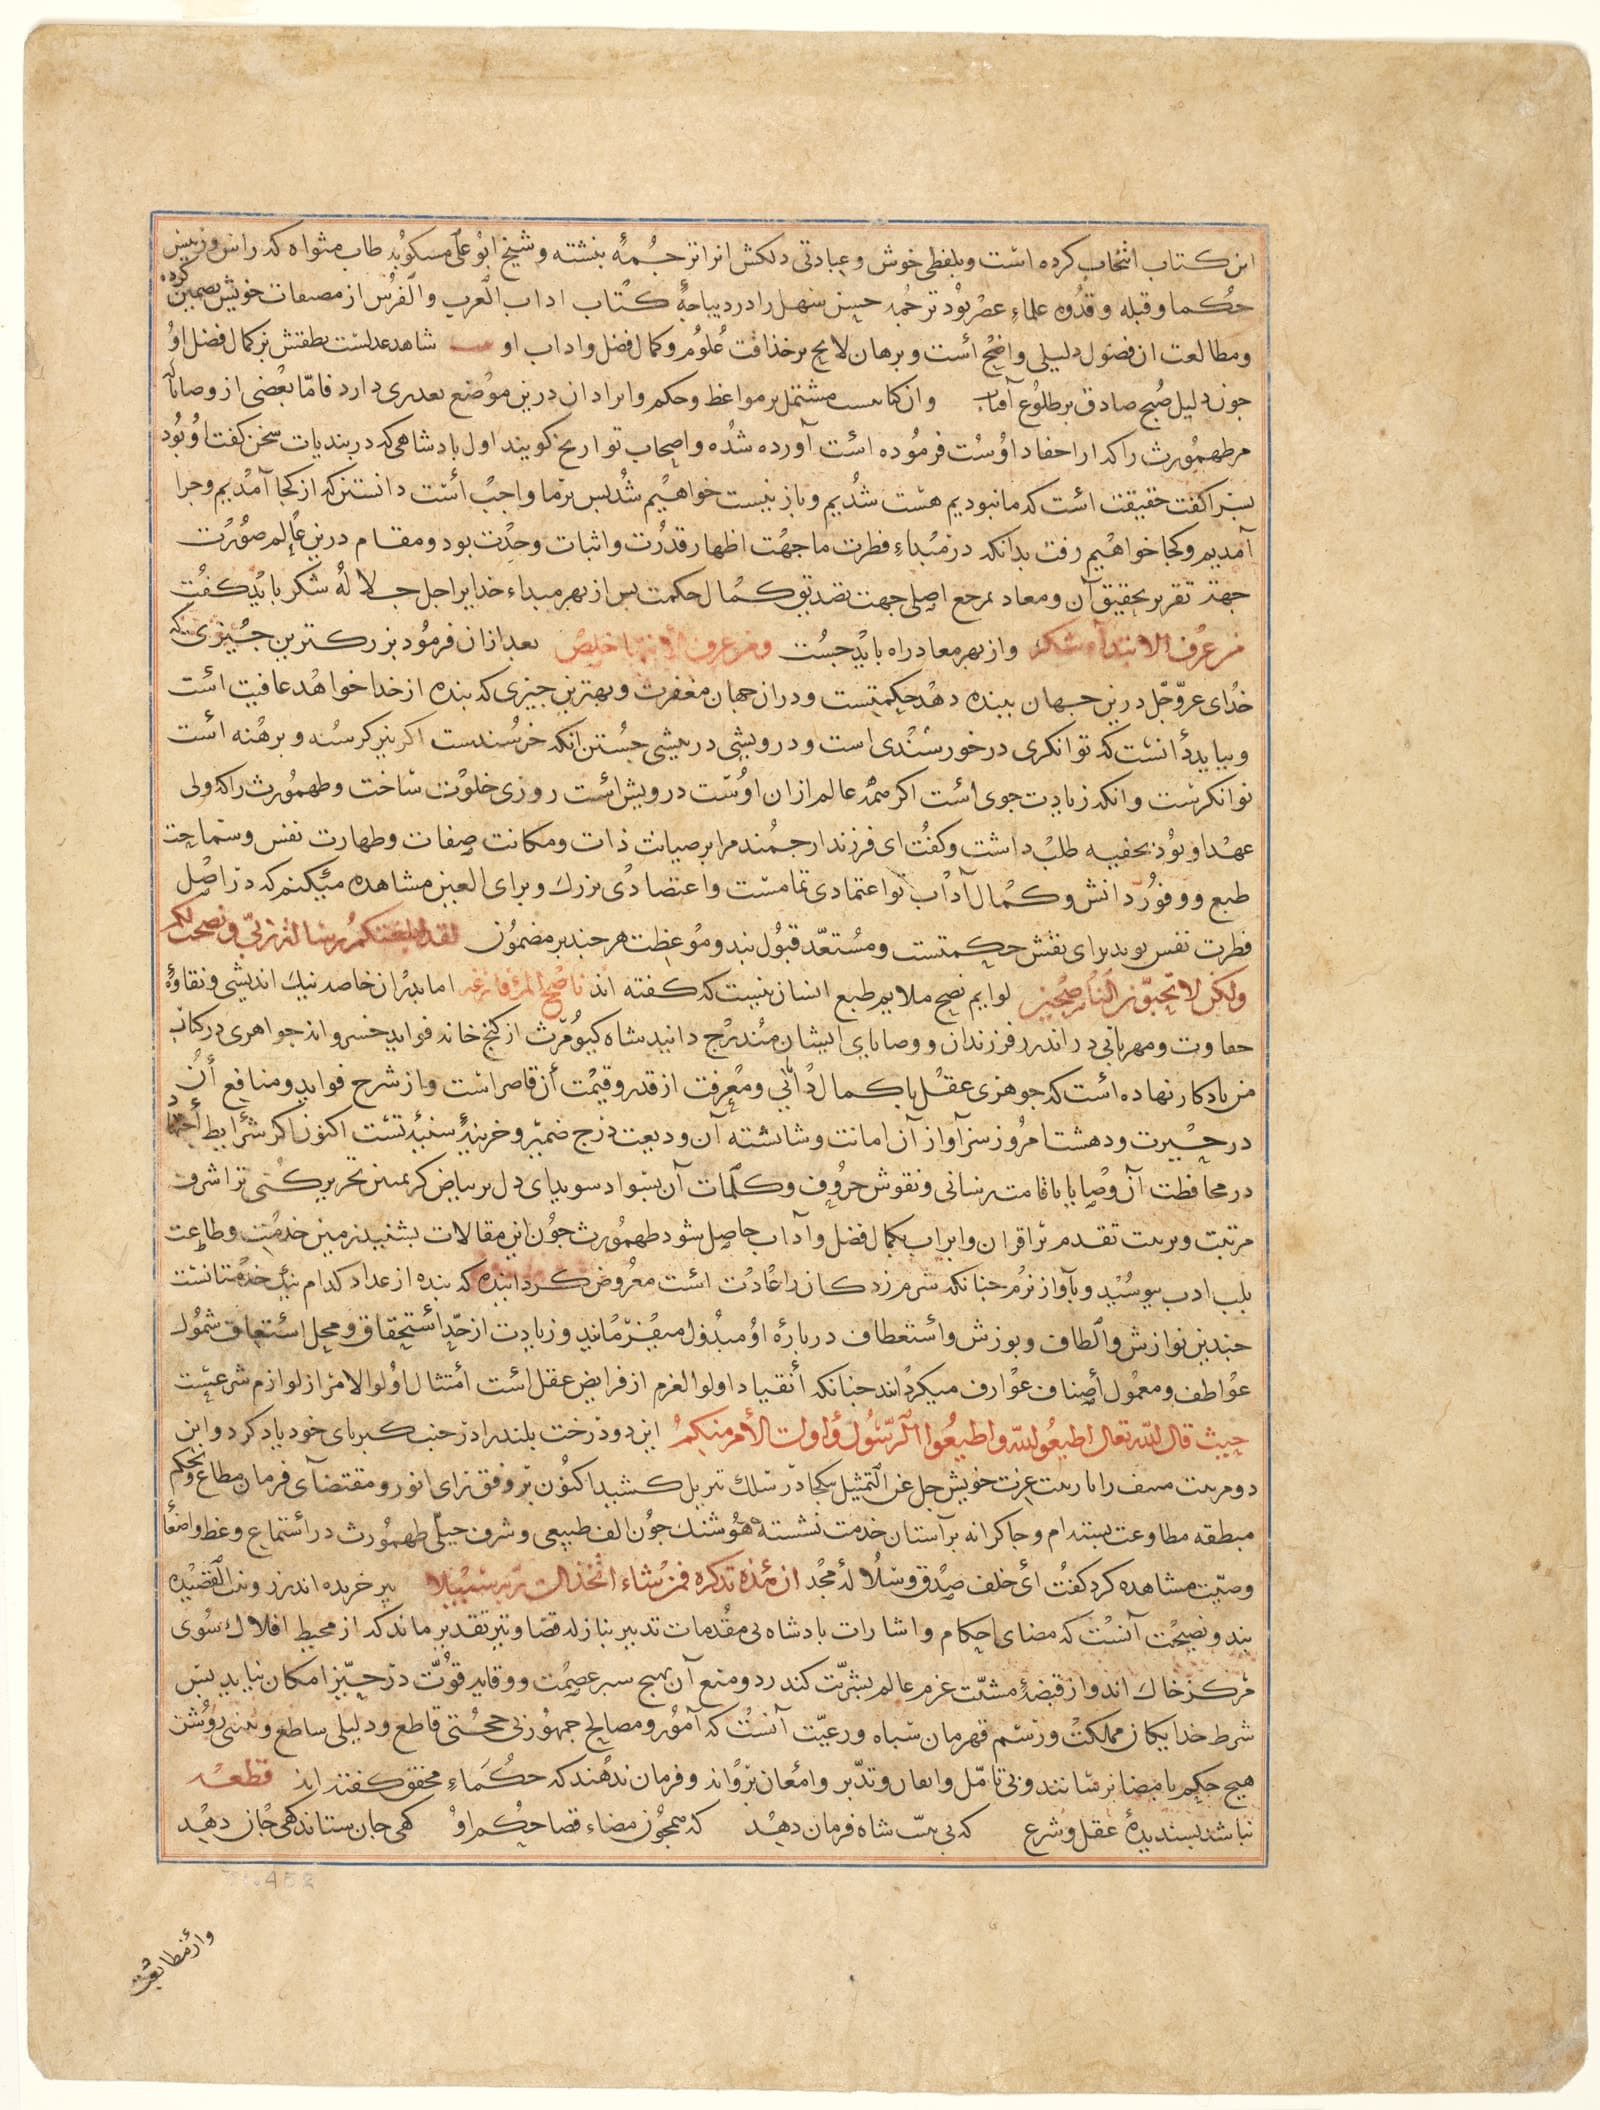 این کتاب انتخاب کرده است و بلفظی خوش و عبادتی دلکش انرا ترجمهٔ بنشته و شیخ ابو علی مسکویه طاب مثواه که راس و رئیس
حکما و قبله و قدوه علماءِ عصر بود ترجمه حسن سهل را در دیباجهٔ کتاب اداب العرب والفرس از مصنفات خویش تضمین کرده
و مطالعت ان فصول دلیلی واضح است و برهان لایح بر حذاقت علوم و کمال فضل و اداب او شاهد عدلست نطقش بر کمال فضل او
جون دلیل صبح صادق بر طلوع آفتاب وان کتابیست مشتمل بر مواعظ و حکم و ایراد ان درین موضع تعذری دارد فامّا بعضی از وصایا که
مر طهمورث را که از احفاد اوست فرموده است آورده شده و اصحاب تواریخ کویند اول بادشاهی که در بندیات سخن کفت او بود
بسر را کفت حقیقت است که ما نبودیم هست شدیم و باز نیست خواهیم شد بس بر ما واجب است دانستن که از کجا آمدیم و جرا
آمدیم و کجا خواهیم رفت بدانکه در مبداءِ فطرت ما جهت اظهار قدرت و اثبات وحدت بود و مقام درین عالم صورت
جهة تقریر تحقیق آن و معاد بمرجع اصلی جهت تصدیق کمال حکمت بس از بهر مبداء خدایرا جل جلاله شکر باید کفت
من عرف الابتداء شکر و از بهر معاد راه باید جست و من عرف الانتها خلص بعد ازان فرمود بزرکترین جیزی که
خدای عزّ و جّل درین جهان ببنده دهد حکمتست و دران جهان مغفرت و بهترین جیزی که بنده از خدا خواهد عافیت است
و بباید دانست که توانکری در خورسندی است و درویشی در بیشی جستن انکه خرسندست اکر نیز کرسنه و برهنه است
توانکرست وانکه زیادت جوی است اکر همه عالم ازان اوست درویش است روزی خلوت ساخت و طهمورث را که ولی
عهد او بود بخفیه طلب داشت و کفت ای فرزند ارجمند مرا بر صیانت ذات و مکانت صفات و طهارت نفس و سماحت
طبع و وفور دانش و کمال آداب تو اعتمادی تمامست و اعتضادی بزرک و برای العین مشاهده میکنم که در اصل
فطرت نفس تو بذیرای نقش حکمتست و مستعدّ قبول بند و موعظت هر جند بر مضمون لقد ابلغتکم رسالة ربّی و نصحت لکم
ولکن لا تحبّون الناصحین لوایم نصح ملایم طبع انسان نیست که کفته اند ناصح المرء اما بدران خاصه نیک اندیشی و نقاوهٔ
حفاوت و مهربانی در اندرز فرزندان و وصایای ایشان مندرج دانید شاه کیومرث از کنج خانه فواید خسروانه جواهری در کتاب
من یادکار نهاده است که جوهری عقل با کمال دانی و معرفت از قدر و قیمت آن قاصر است و از شرح فواید و منافع آن
در حیرت و دهشت امروز سزاوار آن امانت و شایسته آن ودیعت درج ضمیر و خزینهٔ سینهٔ تست اکنون اکر شرایط
در محافظت آن وصایا باقامت رسانی و نقوش حروف و کلمات آن بسواد سویدای دل بر بیاض کریمین تحریر کنی ترا شرف
مرتبت و مزیت تقدم بر اقران و اتراب بکمال فضل و آداب حاصل شود طهمورث جون این مقالات بشنید زمین خدمت و طاعت
بلب ادب ببوسید و بآواز نرم جنانکه شرم زدکان را عادت است معروض کردانید که بنده از عداد کدام نیک خدمتانست
جندین نوازش و الطاف و بوزش و استعطاف دربارهٔ او مبذول میفرمانید و زیادت از حدّ استحقاق و محل استعاق شمول
عواطف و معمول اصناف عوارف میکردانند جنانکه انقیاد اولوا العزم از فرایض عقل است امتثال اولوا الامر از لوازم شرعیست
حیث قال الله تعالی اطیعوا الله و اطیعوا الرّسول و اولی الأمر منکم این دو درخت بلند را در جنب کبریای خود یاد کرد و این
دو مرتبت منیف را با رتبت عزت خویش جل عن التمثیل یکجا در سلک تنزیل کشید اکنون بر وفق رای انور و مقتضای فرمان مطاع و بحکم
منطقه مطاوعت بسته‌ام و جاکرانه بر آستان خدمت نشسته هوشنک جون الف طبیعی و شرف جبلّی طهمورث در استماع وعظ و اصغا
وصیّت مشاهده کرد کفت ای خلف صدق و سلالهٔ مجد ان هذه تذکره فمن شاء اتخذ الی ربه سبیلا سر خریده اندرز و بیت القصیده
بند و نصیحت آنست که مضای احکام و اشارات بادشاه بی مقدمات تدبیر بنازله قضا و تیر تقدیر ماند که از محیط افلاک سوی
مرکز خاک اند و از قبضهٔ مشیّت عزم عالم بشریّت کند رد و منع آن بهیج سبر عصمت و وقایه قوّت در حیّز امکان نیاید بس
شرط خدایکان مملکت و رسم قهرمان سباه و رعیّت آنست که امور و مصالح جمهور بی حجتی قاطع و دلیلی ساطع و بینتی روشن
هیج حکم بامضا نرسانند و بی تامّل و اتقان و تدّبر و امعان بروانه و فرمان ندهند که حکماءِ محقق کفته اند قطعه
نباشد بسندیدهٔ عقل و شرع که بی بینت شاه فرمان دهد که همجون مضاء قضا حکم او کهی جان ستاند کهی جان دهد